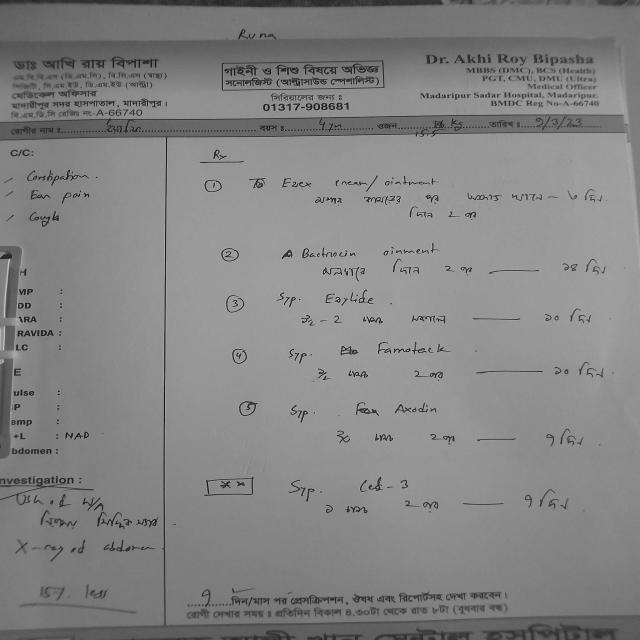 Runa
ডাঃ আখি রায় বিপাশা
এম.বি.বি.এস (ডি.এম.সি), বি.সি.এস (স্বাস্থ্য)
পিজিটি, সি.এম.ইউ, ডি.এম.ইউ (আল্ট্রা)
মেডিকেল অফিসার
মাদারীপুর সদর হাসপাতাল, মাদারীপুর।
বি.এম.ডি.সি রেজিঃ নং-A-66740
গাইনী ও শিশু বিষয়ে অভিজ্ঞ
সনোলজিস্ট (আল্ট্রাসাউন্ড স্পেশালিস্ট)
সিরিয়ালের জন্য :
01317-908681
Dr. Akhi Roy Bipasha
MBBS (DMC), BCS (Health)
PGT, CMU, DMU (Ultra)
Medical Officer
Madaripur Sadar Hospital, Madaripur.
BMDC Reg No-A-66740
রোগীর নাম : বয়স : 4 yrs ওজন 15.5 kg তারিখ : ৭/3/23
C/C:
Constipation.
Ear pain
Cough
H
MP :
DD :
ARA :
RAVIDA :
LC :
E
ulse :
P :
emp :
+L : NAD
bdomen :
nvestigation :
X-ray of abdomen
15% less
Rx
① Ezex cream/ointment
দিনে ২ বার
② Bactrocin oinment
দিনে ২ বার — ১৪ দিন
③ Syp. Ezylide.
— ১০ দিন
④ Syp. Famotack
২ বার — ১০ দিন
⑤ Syp. Axodin
২ বার — ৭ দিন
** Syp. Cef-3
১ চামচ ২ বার — ৭ দিন
৭ দিন/মাস পর প্রেসক্রিপশন, ঔষধ এবং রিপোর্টসহ দেখা করবেন।
রোগী দেখার সময় : প্রতিদিন বিকাল ৪.৩০টা থেকে রাত ৮টা (বুধবার বন্ধ)